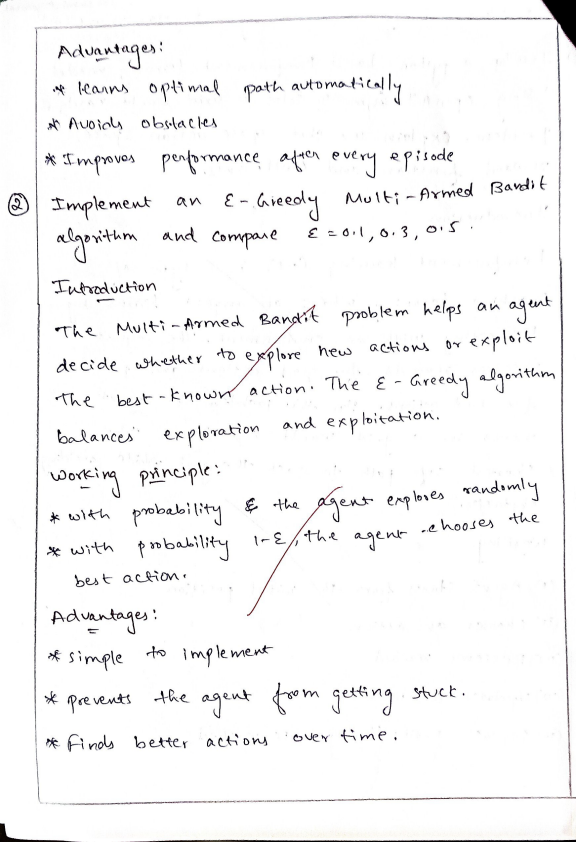 Advantages:
* learns optimal path automatically
* Avoids obstacles
* Improves performance after every episode
② Implement an ε-Greedy Multi-Armed Bandit
algorithm and compare ε = 0.1, 0.3, 0.5.
Introduction
The Multi-Armed Bandit problem helps an agent
decide whether to explore new actions or exploit
the best-known action. The ε-Greedy algorithm
balances exploration and exploitation.
Working principle:
* with probability ε the agent explores randomly
* with probability 1-ε, the agent chooses the
best action.
Advantages:
* simple to implement
* prevents the agent from getting stuck.
* Finds better actions over time.